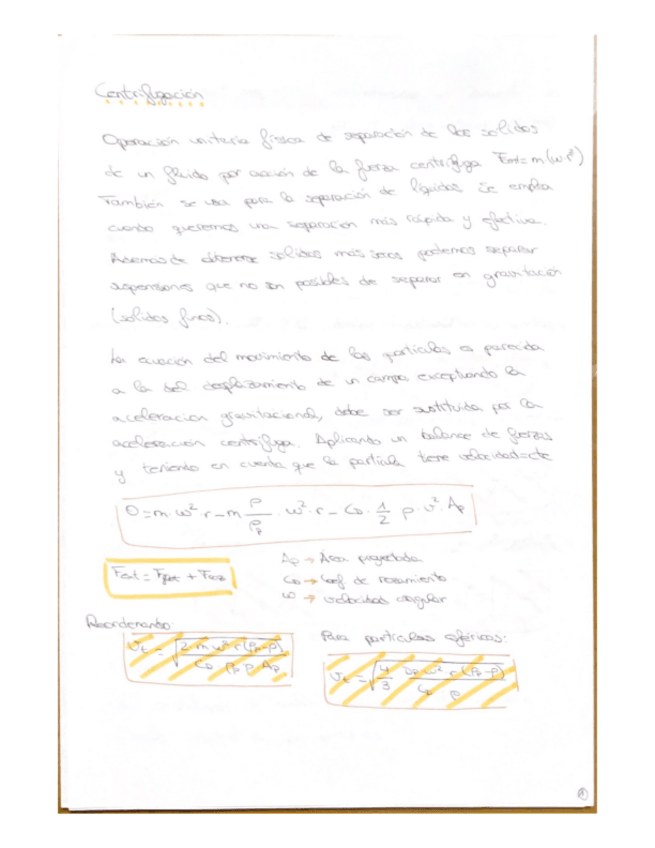 Centrifugación
Operación unitaria física de separación de los sólidos
de un fluido por acción de la fuerza centrífuga Fcent = m(w²r)
También se usa para la separación de líquidos se emplea
cuando queremos una separación más rápida y efectiva.
Además de obtener sólidos más secos podemos separar
suspensiones que no son posibles de separar en gravitación
(sólidos finos).
La ecuación del movimiento de las partículas es parecida
a la del desplazamiento de un campo exceptuando la
aceleración gravitacional, debe ser sustituida por la
aceleración centrífuga. Aplicando un balance de fuerzas
y teniendo en cuenta que la partícula tiene velocidad=cte
0 = m·ω²·r − m ρ/ρp · ω²·r − CD · 1/2 ρ·v²·Ap
Ap → Área proyectada
Fext = Fflot + Froz
CD → Coef de rozamiento
ω → velocidad angular
Reordenando:
Para partículas esféricas:
vt = √(2·m ω² r (ρp−ρ) / CD ρp ρ Ap)
vt = √(4/3 Dp ω² r (ρp−ρ) / CD ρ)
1